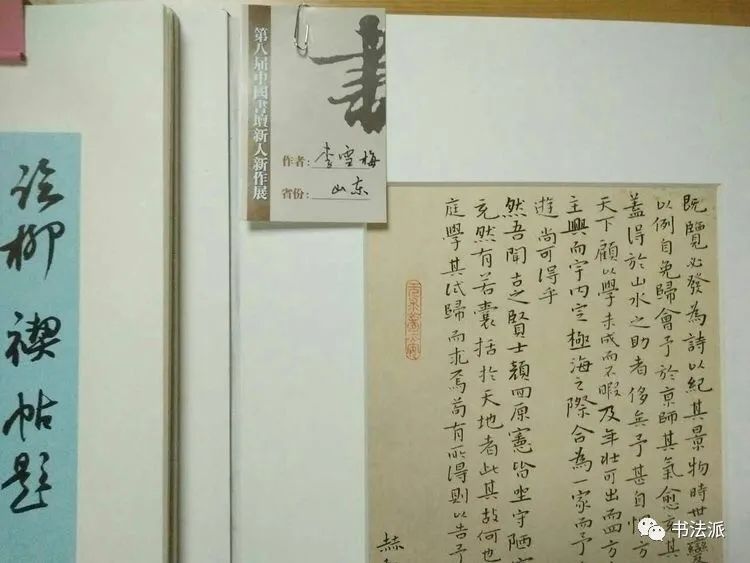 既覽必發為詩以紀其景物時世變
以例自免歸會予於京師其氣愈充其
蓋得於山水之助者侈矣予甚自愧方
天下顧以學未成而不暇及年壯可出而四方
主興而宇内定極海之際合為一家而予
遊尚可得乎
然吾聞古之賢士顏回原憲皆坐守陋室
充然有若囊括於天地者此其故何也
庭學其试歸而求焉苟有所得則以告予
赫
書
第八届中國書壇新人新作展
作者：李雪梅
省份：山东
柳禊帖題
书法派